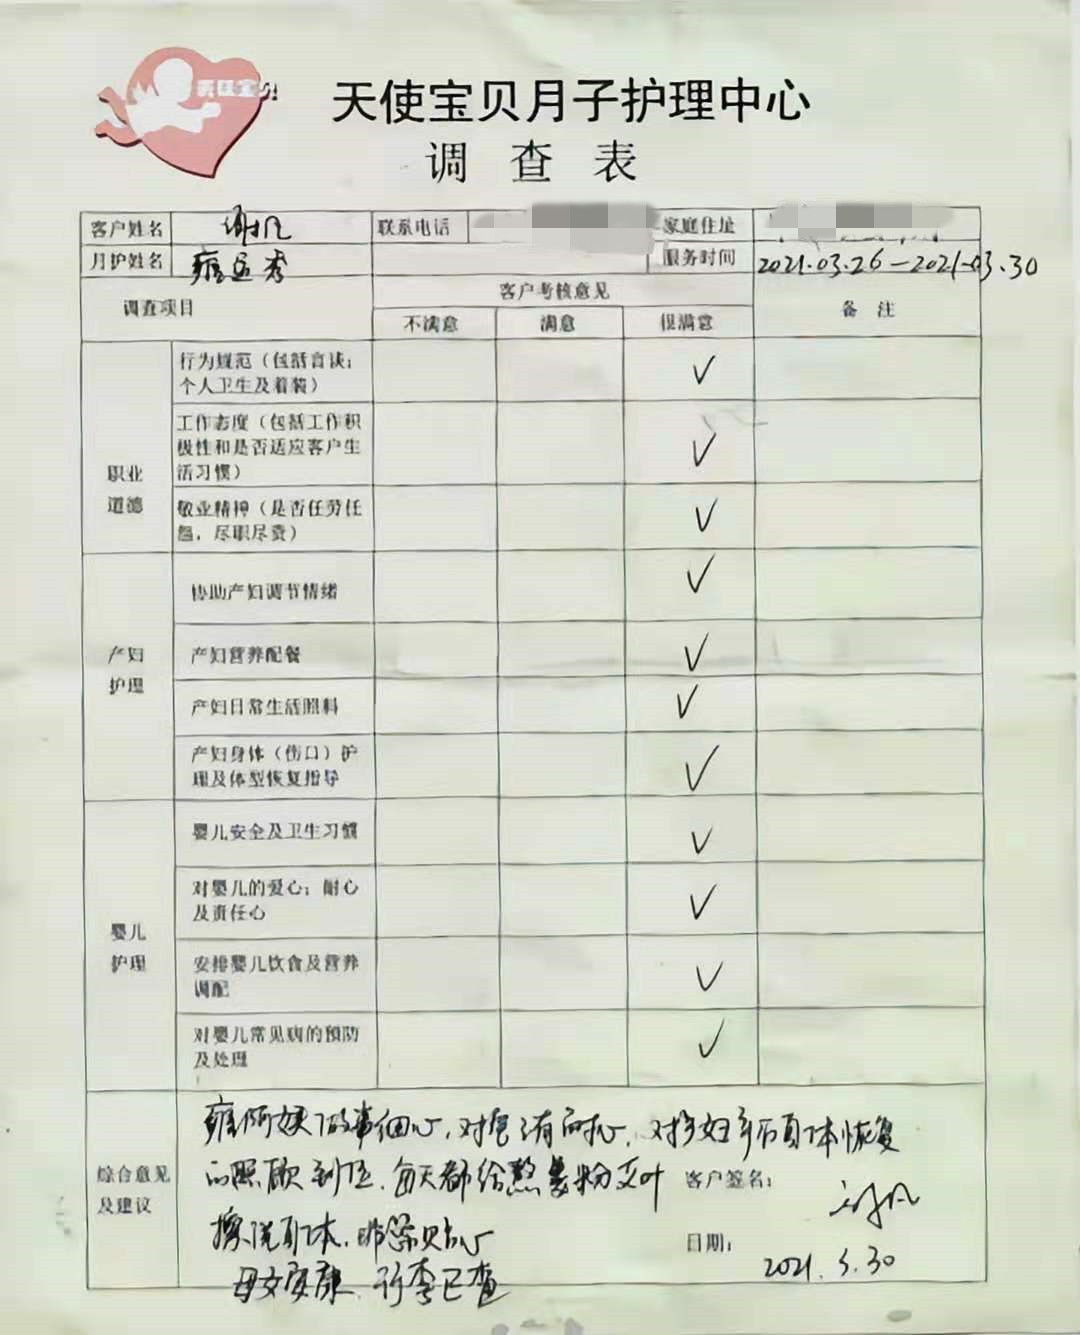 天使宝贝
天使宝贝月子护理中心
调查表
客户姓名 谢凡 联系电话 家庭住址
月护姓名 雍运秀 服务时间 2021.03.26—2021.03.30
调查项目 客户考核意见 备注
不满意 满意 很满意
职业道德
行为规范（包括言谈；
个人卫生及着装） ✓
工作态度（包括工作积
极性和是否适应客户生
活习惯） ✓
敬业精神（是否任劳任
怨，尽职尽责） ✓
产妇护理
协助产妇调节情绪 ✓
产妇营养配餐 ✓
产妇日常生活照料 ✓
产妇身体（伤口）护
理及体型恢复指导 ✓
婴儿护理
婴儿安全及卫生习惯 ✓
对婴儿的爱心；耐心
及责任心 ✓
安排婴儿饮食及营养
调配 ✓
对婴儿常见病的预防
及处理 ✓
综合意见及建议
雍阿姨做事细心，对宝宝有耐心，对产妇身体恢复
的照顾到位，每天都给熬艾叶
擦洗身体，非常贴心
母女安康，行李已查
客户签名： 谢凡
日期： 2021.3.30